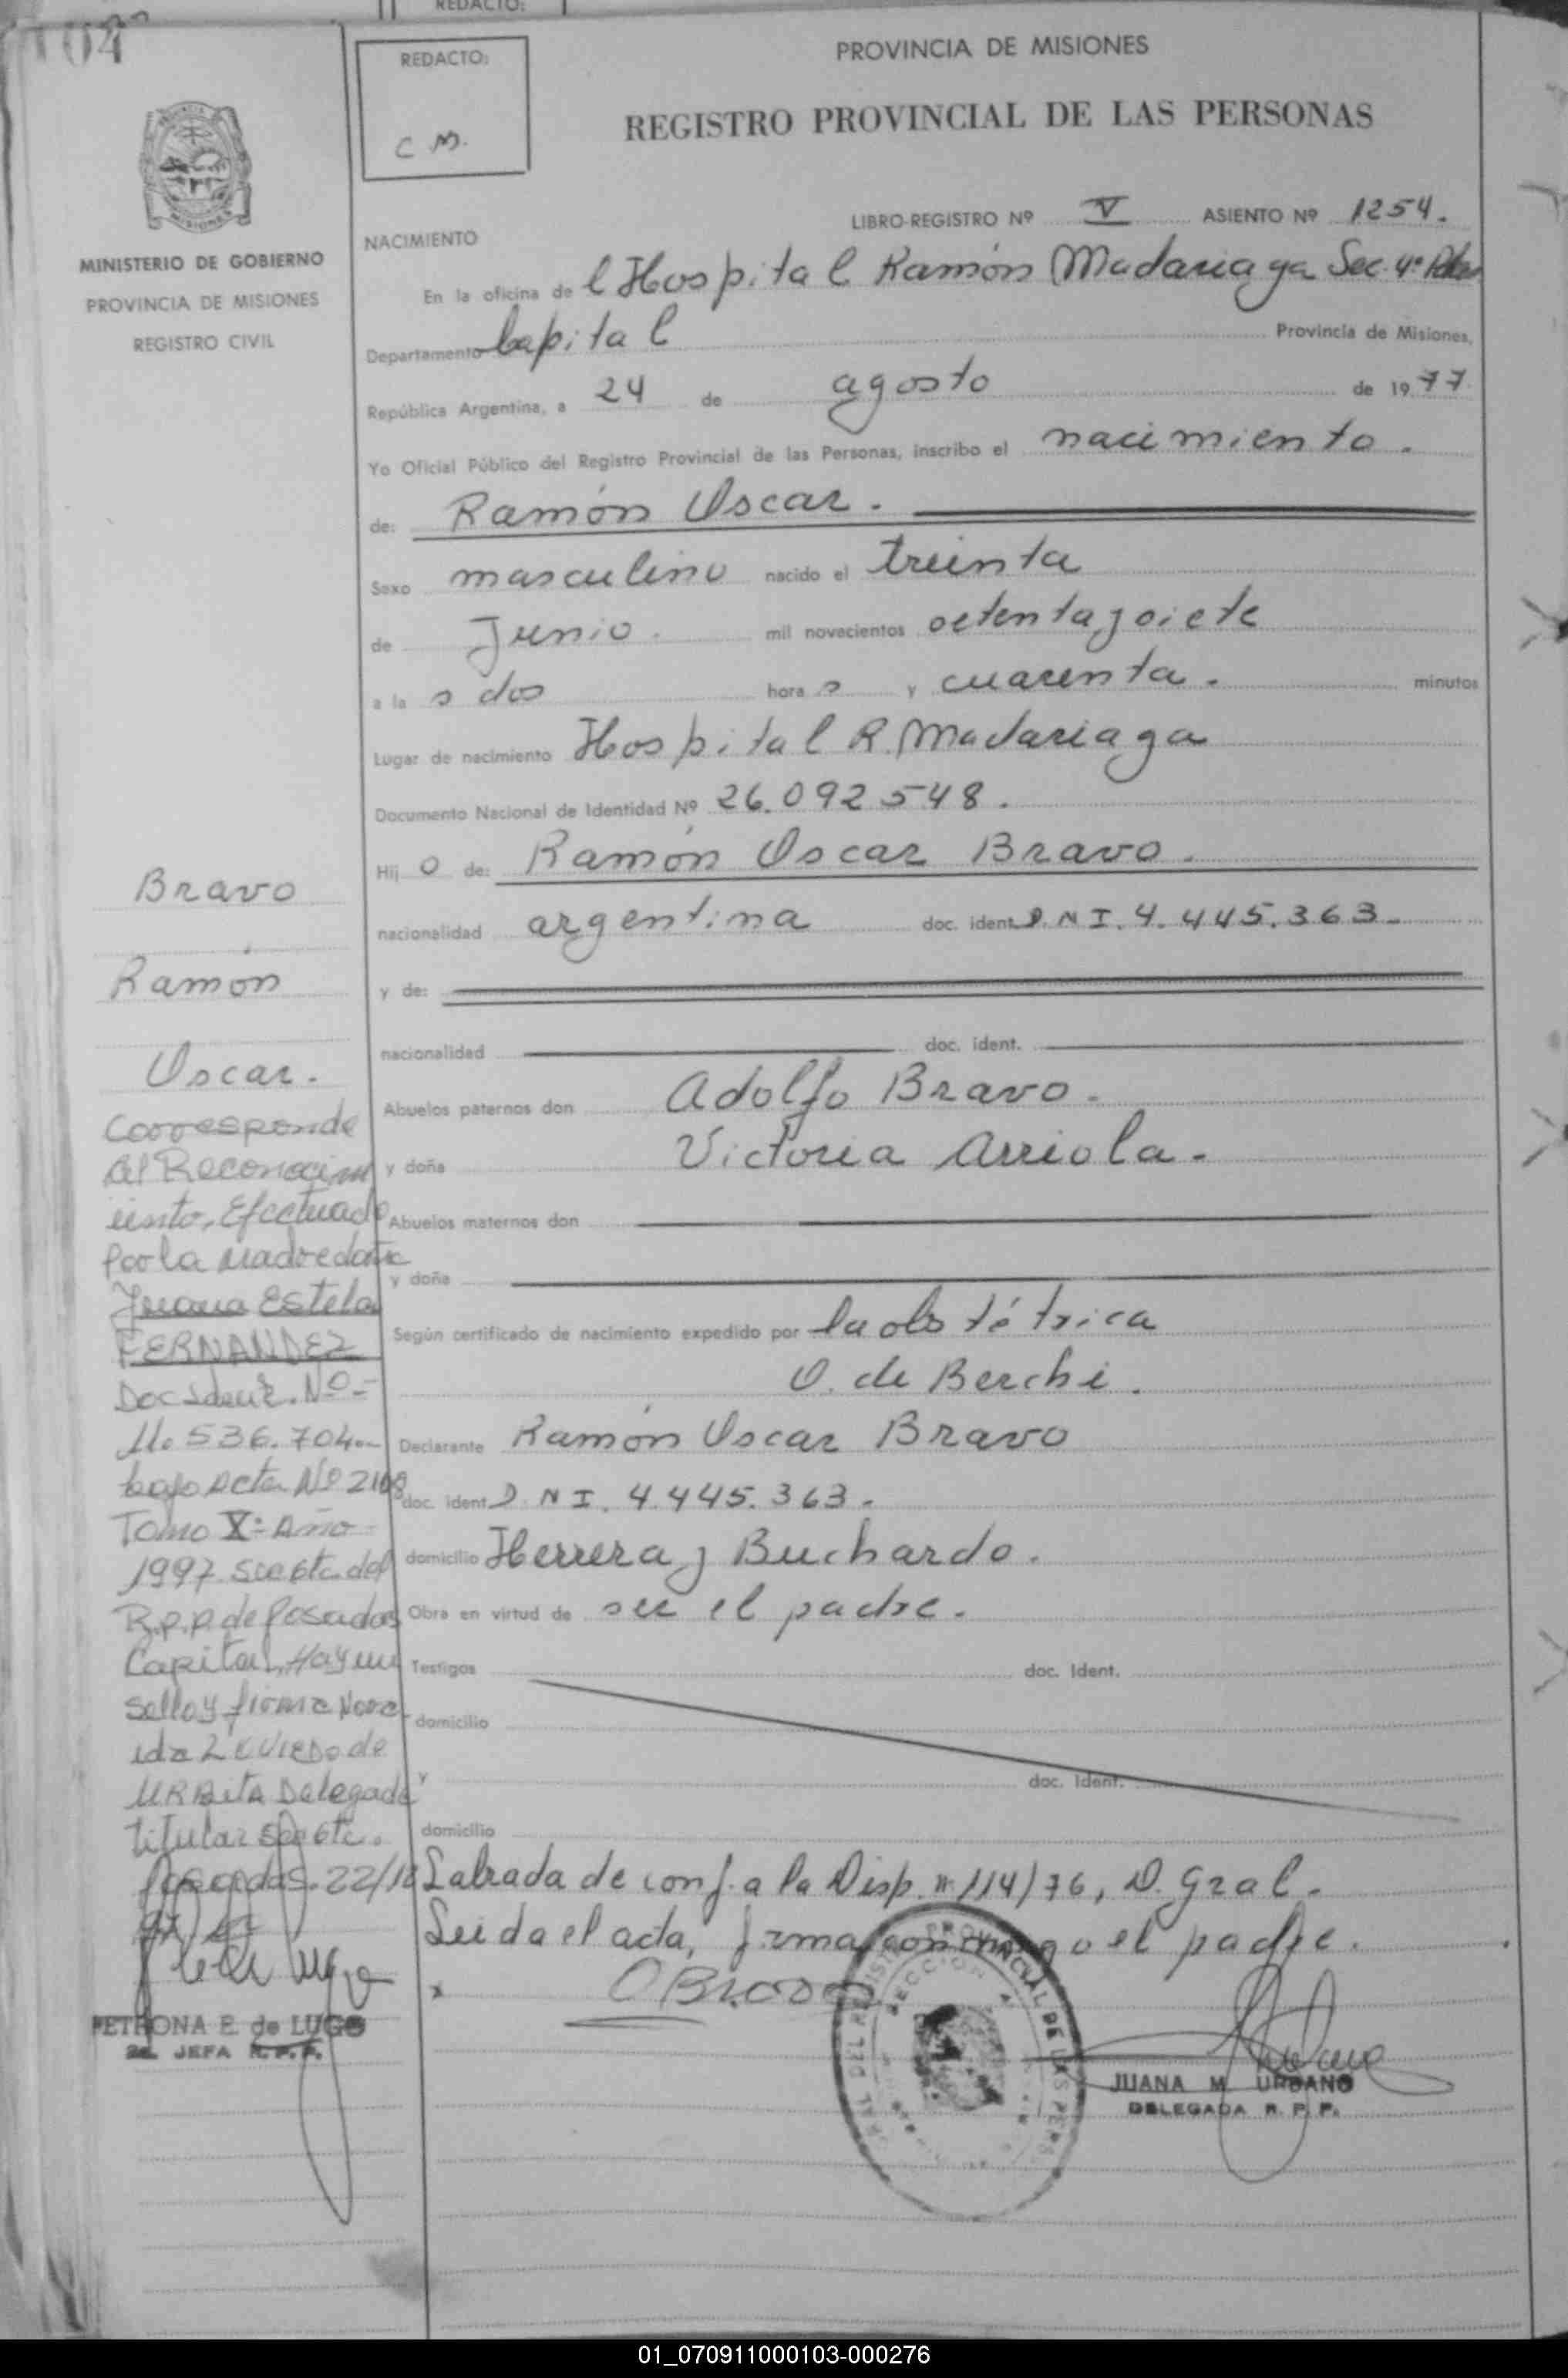 REDACTO:
104
REDACTO:
C M.
PROVINCIA DE MISIONES
REGISTRO PROVINCIAL DE LAS PERSONAS
MINISTERIO DE GOBIERNO
PROVINCIA DE MISIONES
REGISTRO CIVIL
LIBRO-REGISTRO Nº V ASIENTO Nº 1254.
NACIMIENTO
En la oficina de l Hospital Ramón Madariaga Sec. 4º
Departamento Capital Provincia de Misiones,
República Argentina, a 24 de agosto de 1977
Yo Oficial Público del Registro Provincial de las Personas, inscribo el nacimiento.
de: Ramón Oscar.
Sexo masculino nacido el treinta
de Junio. mil novecientos setenta y siete
a la s dos hora s y cuarenta. minutos
Lugar de nacimiento Hospital R. Madariaga
Documento Nacional de Identidad Nº 26.092.548.
Hij o de: Ramón Oscar Bravo.
nacionalidad argentina doc. ident. D.N.I. 4.445.363.
y de:
nacionalidad doc. ident.
Abuelos paternos don Adolfo Bravo.
y doña Victoria Arriola.
Abuelos maternos don
y doña
Según certificado de nacimiento expedido por la obstétrica
O. de Berchi.
Declarante Ramón Oscar Bravo
doc. ident. D N I. 4.445.363.
domicilio Herrera y Buchardo.
Obra en virtud de ser el padre.
Testigos doc. Ident.
domicilio
y doc. Ident.
domicilio
Labrada de conf. a la Disp. nº 114/76, D. Gral.
Leida el acta, firma conmigo el padre.
x OBravo
JUANA M. URBANO
DELEGADA R. P. P.
Bravo
Ramón
Oscar.
Corresponde
al Reconocim
iento, Efectuado
por la madre doña
Juana Estela
FERNANDEZ
Doc Ident. Nº-
11.536.704.-
bajo Acta Nº 2168
Tomo X- Año
1997. Secc 6ta. del
R.P.P. de Posadas
Capital, Hay un
sello y firma
de
URBieta Delegada
titular Secc 6ta.
Posadas. 22/12
PETRONA E. de LUGO
2a. JEFA R.P.P.
01_070911000103-000276